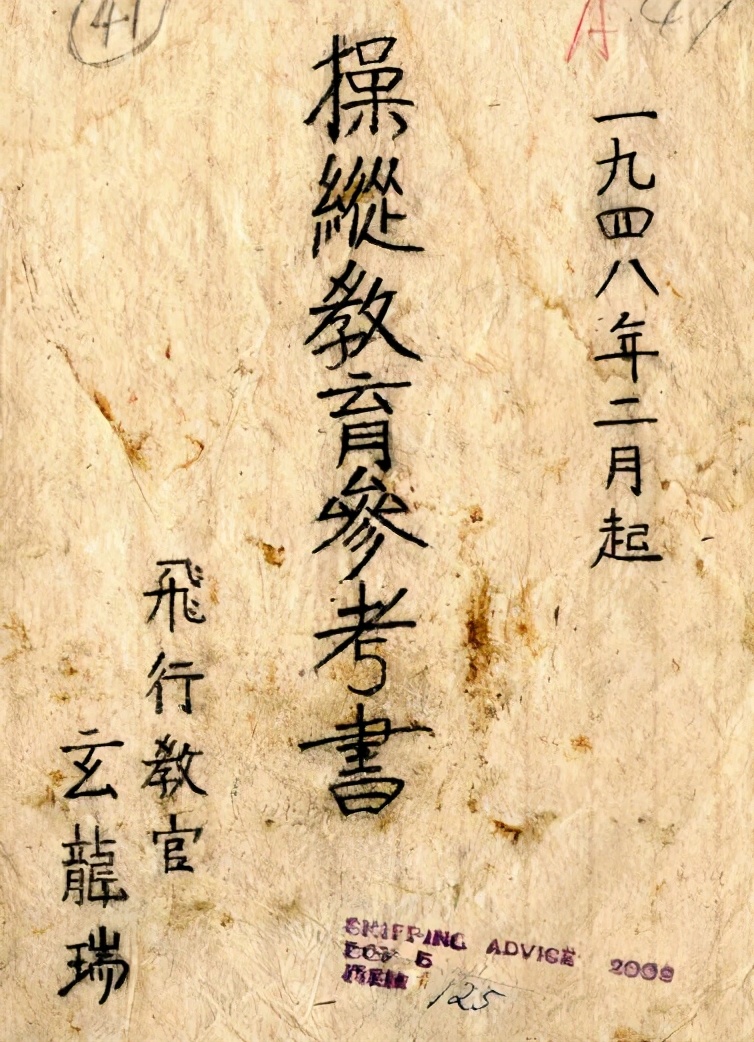 41
一九四八年二月起
操縱教育參考書
飛行教官
玄龍瑞
SHIPPING ADVICE 2009
BOX 5
ITEM 125